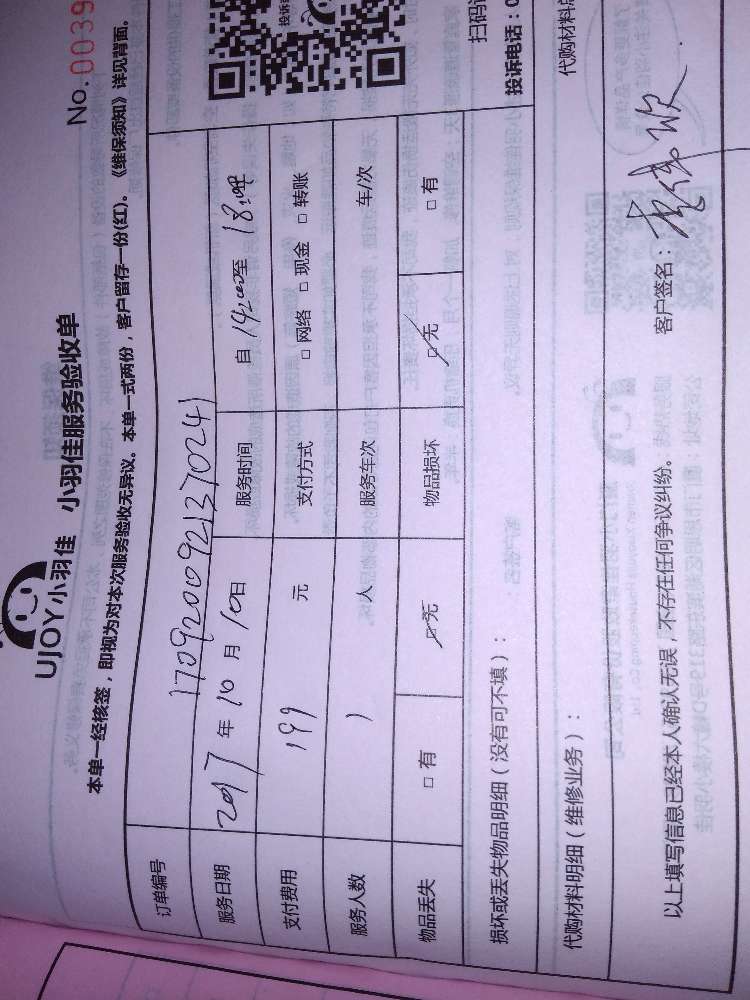 UJOY小羽佳 小羽佳服务验收单
No. 0039
本单一经核签，即视为对本次服务验收无异议。本单一式两份，客户留存一份(红)。《维保须知》详见背面。
订单编号 1709200921370241
服务日期 2017 年 10 月 10 日 服务时间 自 至 18:00
支付费用 199 元 支付方式 □ 网络 □ 现金 □ 转账
服务人数 1 人 服务车次 车/次
物品丢失 □ 有 □ 无 物品损坏 □ 无 □ 有
损坏或丢失物品明细（没有可不填）：
代购材料明细（维修业务）： 代购材料总
以上填写信息已经本人确认无误，不存在任何争议纠纷。 客户签名：
投诉
扫码
投诉电话：0